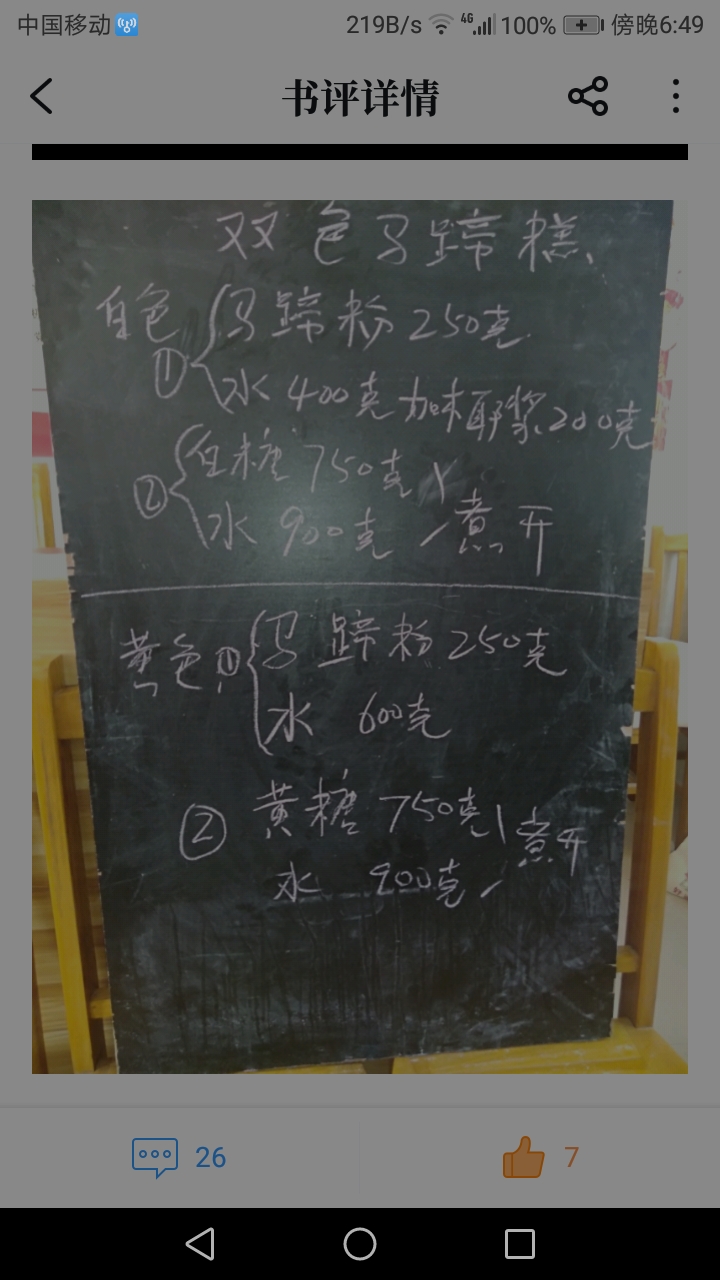 中国移动 219B/s 4G 100% 傍晚6:49
书评详情
双色马蹄糕
白色 ① 马蹄粉250克
水400克 加木耶浆200克
② 白糖750克
水900克 煮开
黄色 ① 马蹄粉250克
水 600克
② 黄糖750克 煮开
水 900克
26 7